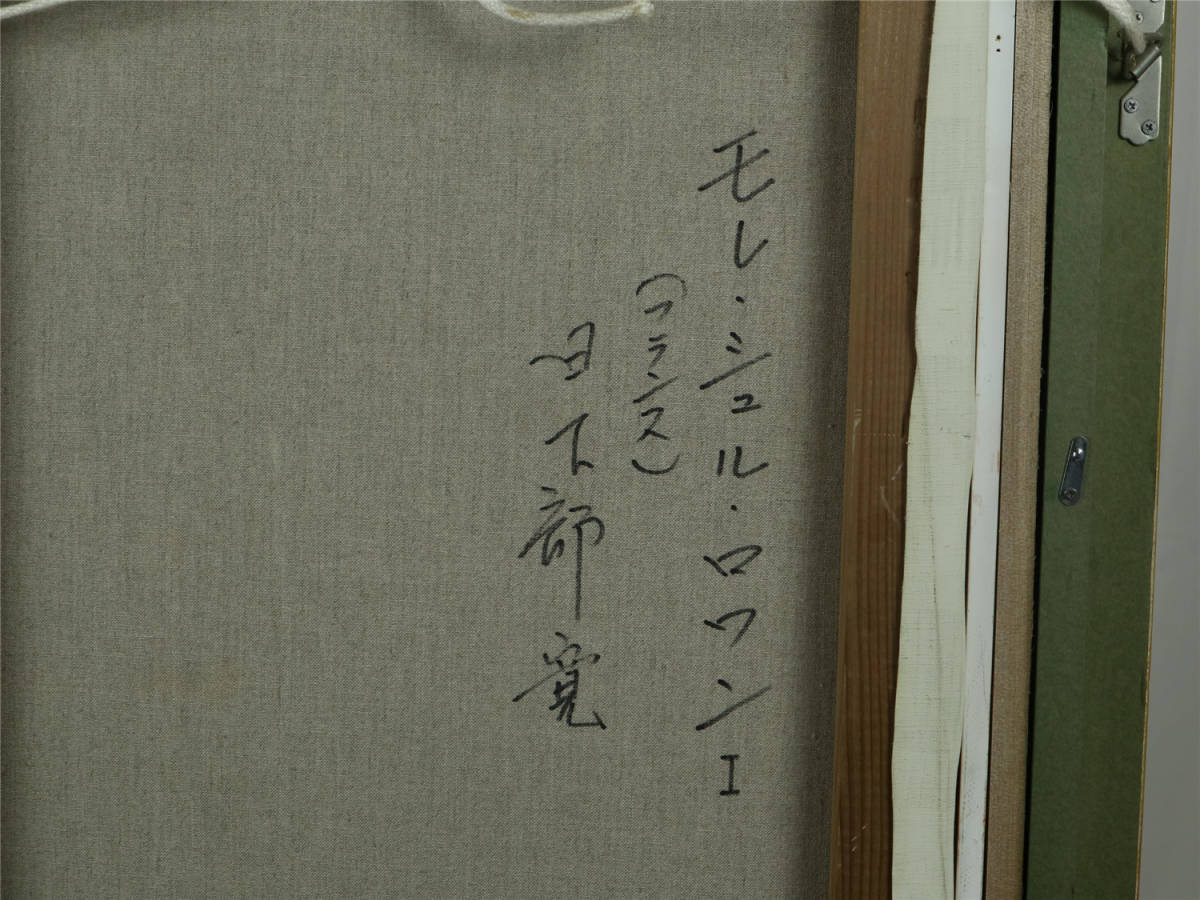 モレ・シュル・ロワンI
(フランス)
日下部寛